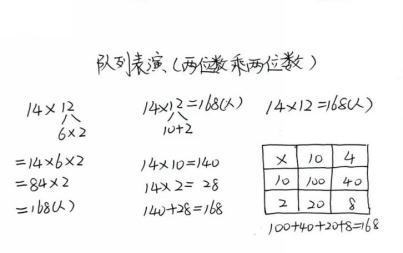 队列表演(两位数乘两位数)
14×12
6×2
=14×6×2
=84×2
=168(人)
14×12=168(人)
10+2
14×10=140
14×2=28
140+28=168
14×12=168(人)
× 10 4
10 100 40
2 20 8
100+40+20+8=168